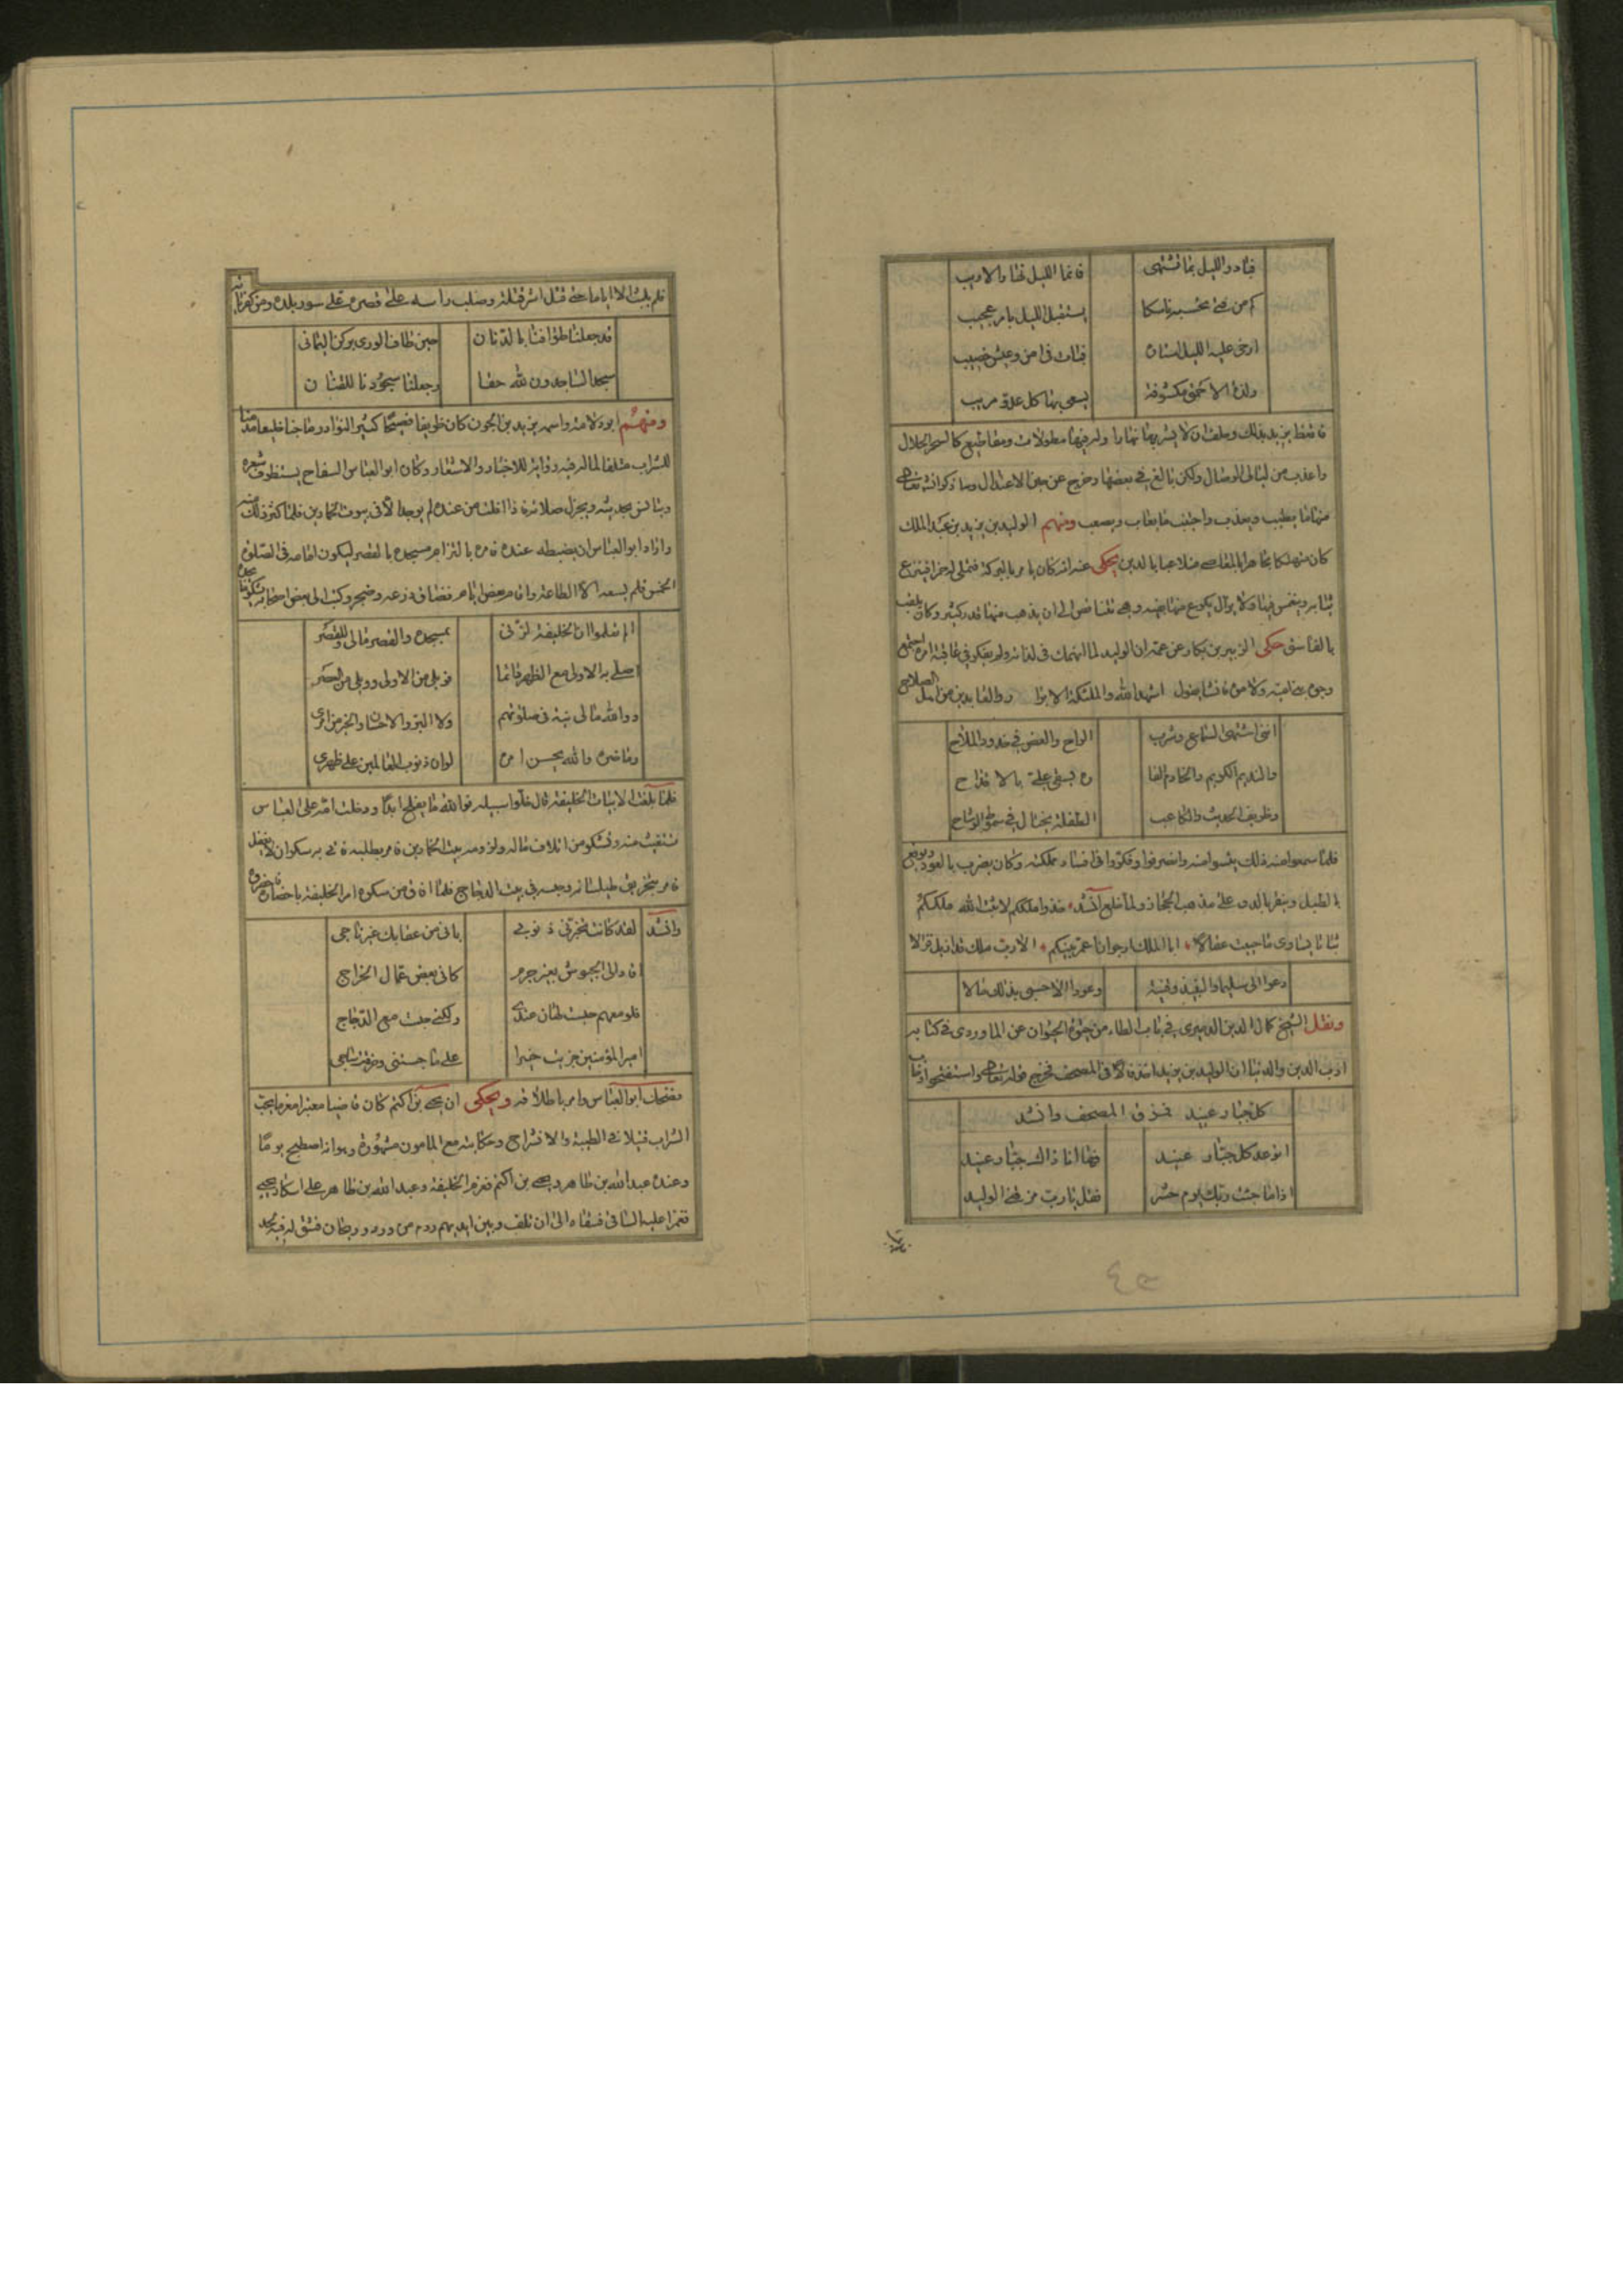 فبادر الليل بما تشتهي فانما الليل نهار الاريب
كم من فتى تحسبه ناسكا يستقبل الليل بامر عجيب
ارخى عليه الليل استاره فبات في امن وعيش خصيب
ولذة الاحمق مكشوفة يسعى بها كل عدو مريب
فاتعظ يزيد بذلك وحلف ان لا يشربها نهارا وله فيها مطولات ومقاطيع كالسحر الحلال
واعذب من ليالي الوصال ولكن بالغ في بعضها وخرج عن حين الاعتدال وساذكر انشا الله تعالى
منها ما يطيب ويعذب واجتنب ما يعاب ويصعب ومنهم الوليد بن يزيد بن عبد الملك
كان منهمكا مجاهرا بالمعاصي متلاعبا بالدين يحكى عنه انه كان يامر بالبركة فتملى له خمرا فينزع
ثيابه وينغمس فيها ولا يزال يكرع منها بفيه وهي تتناقص الى ان يذهب منها قدر كثير وكان يلقب
بالفاسق حكى الزبير بن بكار عن عمه ان الوليد لما انهمك في لذاته ولم يفكر في عاقبة امره اجتمع
وجوه بني امية ولاموه فانشا يقول اشهد الله والملئكة الابرار والعابدين من اهل الصلاح
انني اشتهي السماع وشرب الراح والعض في خدود الملاح
والنديم الكريم والخادم الفاره يسعى علي بالاقداح
وظريف الحديث والكاعب الطفلة تختال في سموط الوشاح
فلما سمعوا منه ذلك يئسوا منه وانصرفوا وفكروا في افساد مملكته وكان يضرب بالعود ويوقع
بالطبل وينقر بالدف على مذهب الحجاز ولما خلع انشد خذوا ملككم لا ثبت الله ملككم
ثباتا يساوي ما حييت عقالا
دعوا لي سليما والنبيذ وقينة وعودا الا حسبي بذلك مالا
ونقل الشيخ كمال الدين الدميري في باب الطاء من حيوة الحيوان عن الماوردي في كتابه
ادب الدين والدنيا ان الوليد بن يزيد استفال في المصحف فخرج قوله تعالى واستفتحوا وخاب
كل جبار عنيد فمزق المصحف وانشد
اتوعد كل جبار عنيد فها انا ذاك جبار عنيد
اذا ما جئت ربك يوم حشر فقل يا رب مزقني الوليد
فلم يلبث الا اياما حتى قتل اشر قتلة وصلب راسه على قصره ثم على سور بلده ومن كفرياته
قد جعلنا طوافنا بالدنان حين طاف الورى بركن اليماني
سجد الساجدون لله حقا وجعلنا سجودنا للقنان
ومنهم ابو دلامة واسمه زيد بن الجون كان ظريفا فصيحا كثير النوادر ماجنا خليعا مدمنا
للشراب متلفا لماله فيه رواية للاخبار والاشعار وكان ابو العباس السفاح يستظرف شعره
ويانس بحديثه ويجزل صلاته فاذا افلت من عنده لم يوجد الا في بيوت الخمارين فلما كثر ذلك منه
واراد ابو العباس ان يضبطه عنده فامره بالتزام مسجده بالقصر ليكون امامه في الصلوة
الخمس فلم يسعه الا الطاعة واقام بعض ايام فضاق ذرعه وضجر وكتب الى بعض اصحابه يشكو ما يجده
الم تعلموا ان الخليفة لزني بمسجده والقصر مالي وللقصر
اصلي به الاولى مع الظهر قائما فويلي من الاولى وويلي من العصر
ووالله مالي نية في صلوتهم ولا البر والاحسان والخير من امري
وما ضره والله يحسن امره لو ان ذنوب العالمين على ظهري
فلما بلغت الابيات الخليفة قال خلوا سبيله فوالله ما يفلح ابدا ودخلت امه على العباس
تستغيث منه وتشكو من اتلاف ماله ولزومه بيت الخمارين فامر بطلبه فاتي به سكران لا يعقل
فامر بتخريق طيلسانه وحبسه في بيت الدجاج فلما افاق من سكره امر الخليفة باحضاره فحضروه
وانشد لقد كانت تخبرني ذنوبي باني من عقابك غير ناجي
اقاد الى الحبوس بغير جرم كاني بعض عمال الخراج
فلو معهم حبست لهان عندي ولكني حبست مع الدجاج
امير المؤمنين جزيت خيرا على ما حبستني وخرقت ساجي
فضحك ابو العباس وامر باطلاقه ويحكى ان يحيى بن اكثم كان قاضيا معتبرا مغرما بحب
الشراب قتيلا في الطيبة والانشراح وحكايته مع المامون مشهورة وهو انه اصطبح يوما
وعنده عبد الله بن طاهر ويحيى بن اكثم فغمز الخليفة وعبد الله بن طاهر على اسكار يحيى
فغمزا عليه الساقي فسقاه الى ان تلف وبين ايديهم ردم من ورد وريحان فشق له فيه لحد